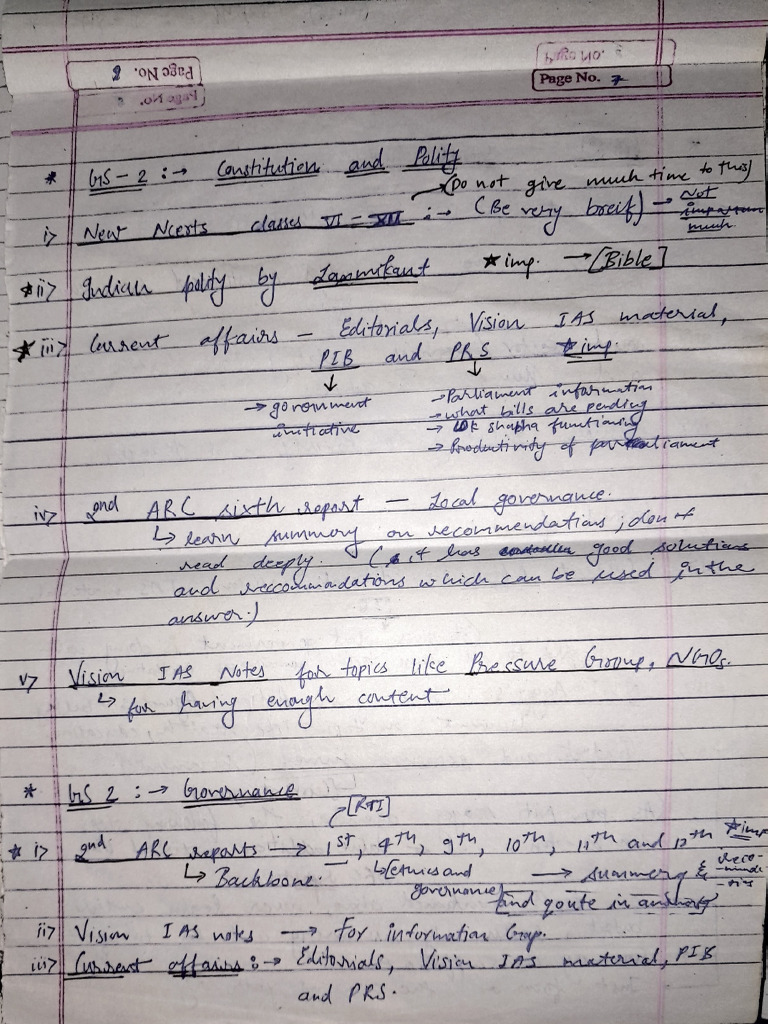 Page No. 8
Page No. 7
* GS-2 :→ Constitution and Polity
(Do not give much time to this)
i> New Ncerts classes VI - XII :→ (Be very breif) → Not
much
*ii> Indian polity by Laxmikant ★imp. → [Bible]
★iii> Current affairs - Editorials, Vision IAS material,
PIB and PRS ★imp.
→ government initiative
→ Parliament information
→ what bills are pending
→ Lok shabha functioning
→ Productivity of parliament
iv> 2nd ARC sixth report - Local governance.
↳ learn summery on recommendations ; don't
read deeply. (it has good solutions
and reccommadations which can be used in the
answer.)
v> Vision IAS Notes for topics like Pressure Group, NGOs.
↳ for having enough content
* GS 2 :→ Governance
[RTI]
* i> 2nd ARC reports → 1st, 4th, 9th, 10th, 11th and 12th ★imp
↳ Backbone.
↳ [ethics and governance]
→ summery & reco-
and qoute in answer]
ii> Vision IAS notes → For information Gap.
iii> Current affairs :→ Editorials, Vision IAS material, PIB
and PRS.